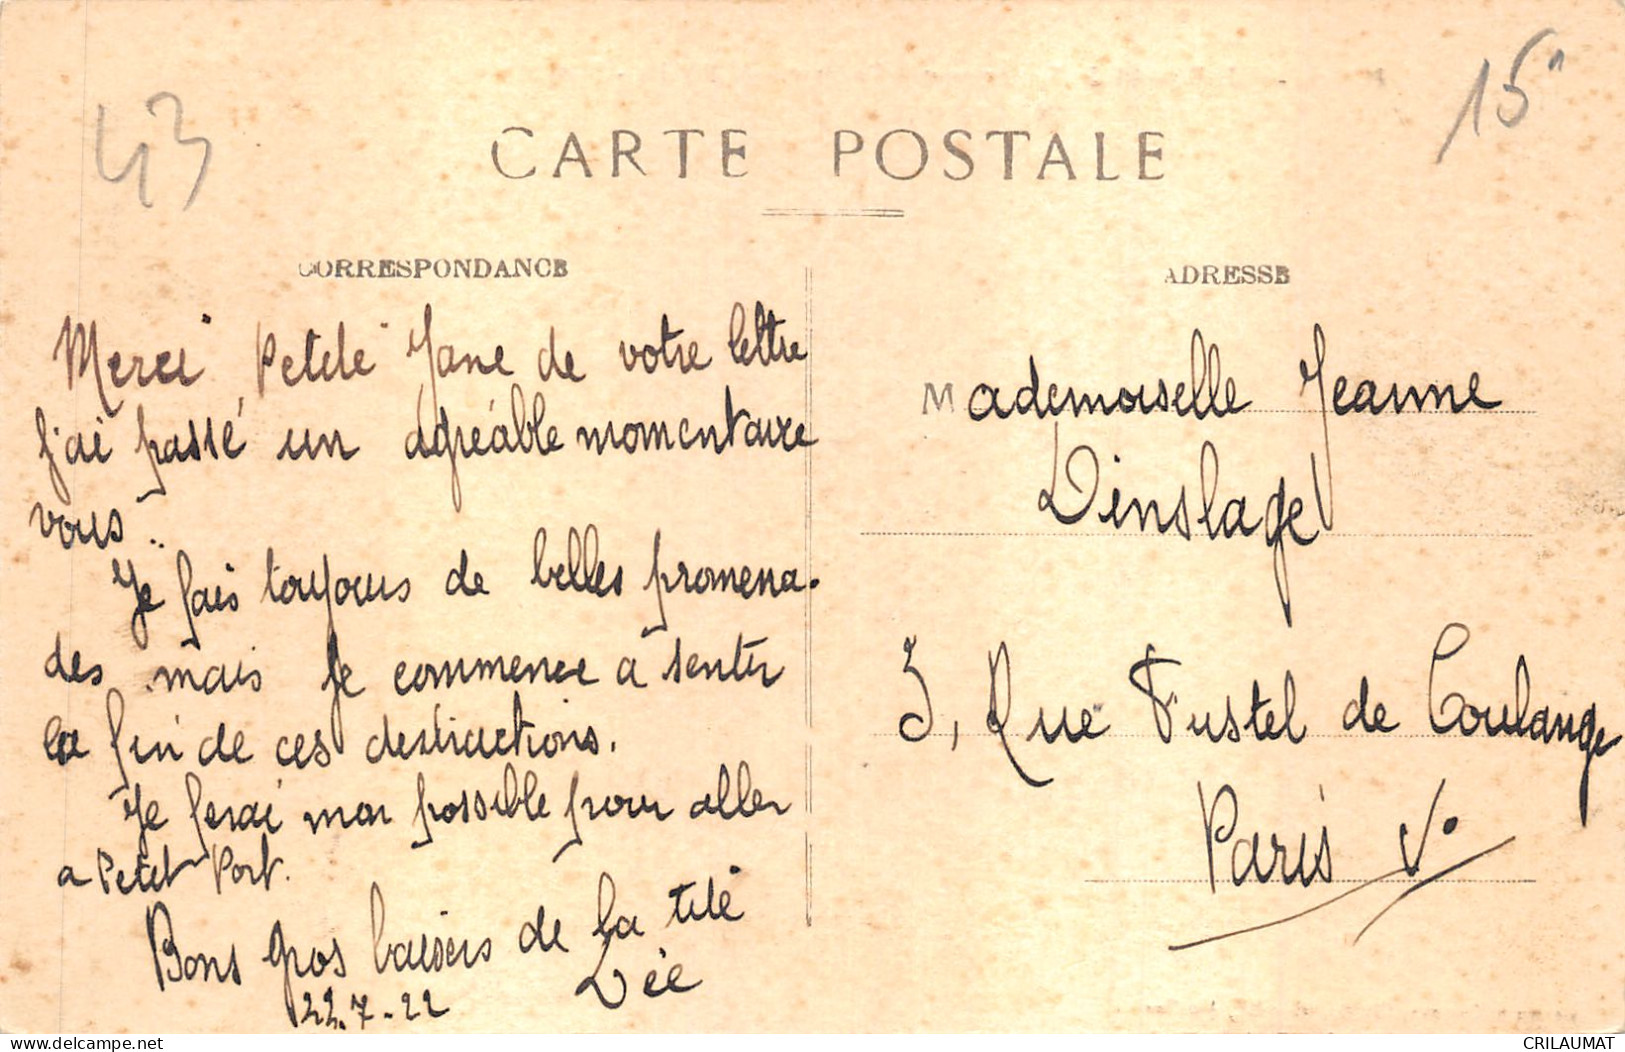 43
15"
CARTE POSTALE
CORRESPONDANCE
Merci Petite Jane de votre lettre
j'ai passé un agréable moment avec
vous..
Je fais toujours de belles promena-
des mais je commence a sentir
la fin de ces destractions.
Je ferai mon possible pour aller
a Petit Port.
Bons gros baisers de la tité
Dée
22.7-22
ADRESSE
Mademoiselle Jeanne
Dinslage
3, Rue Fustel de Coulange
Paris V°
delcampe.net
CRILAUMAT